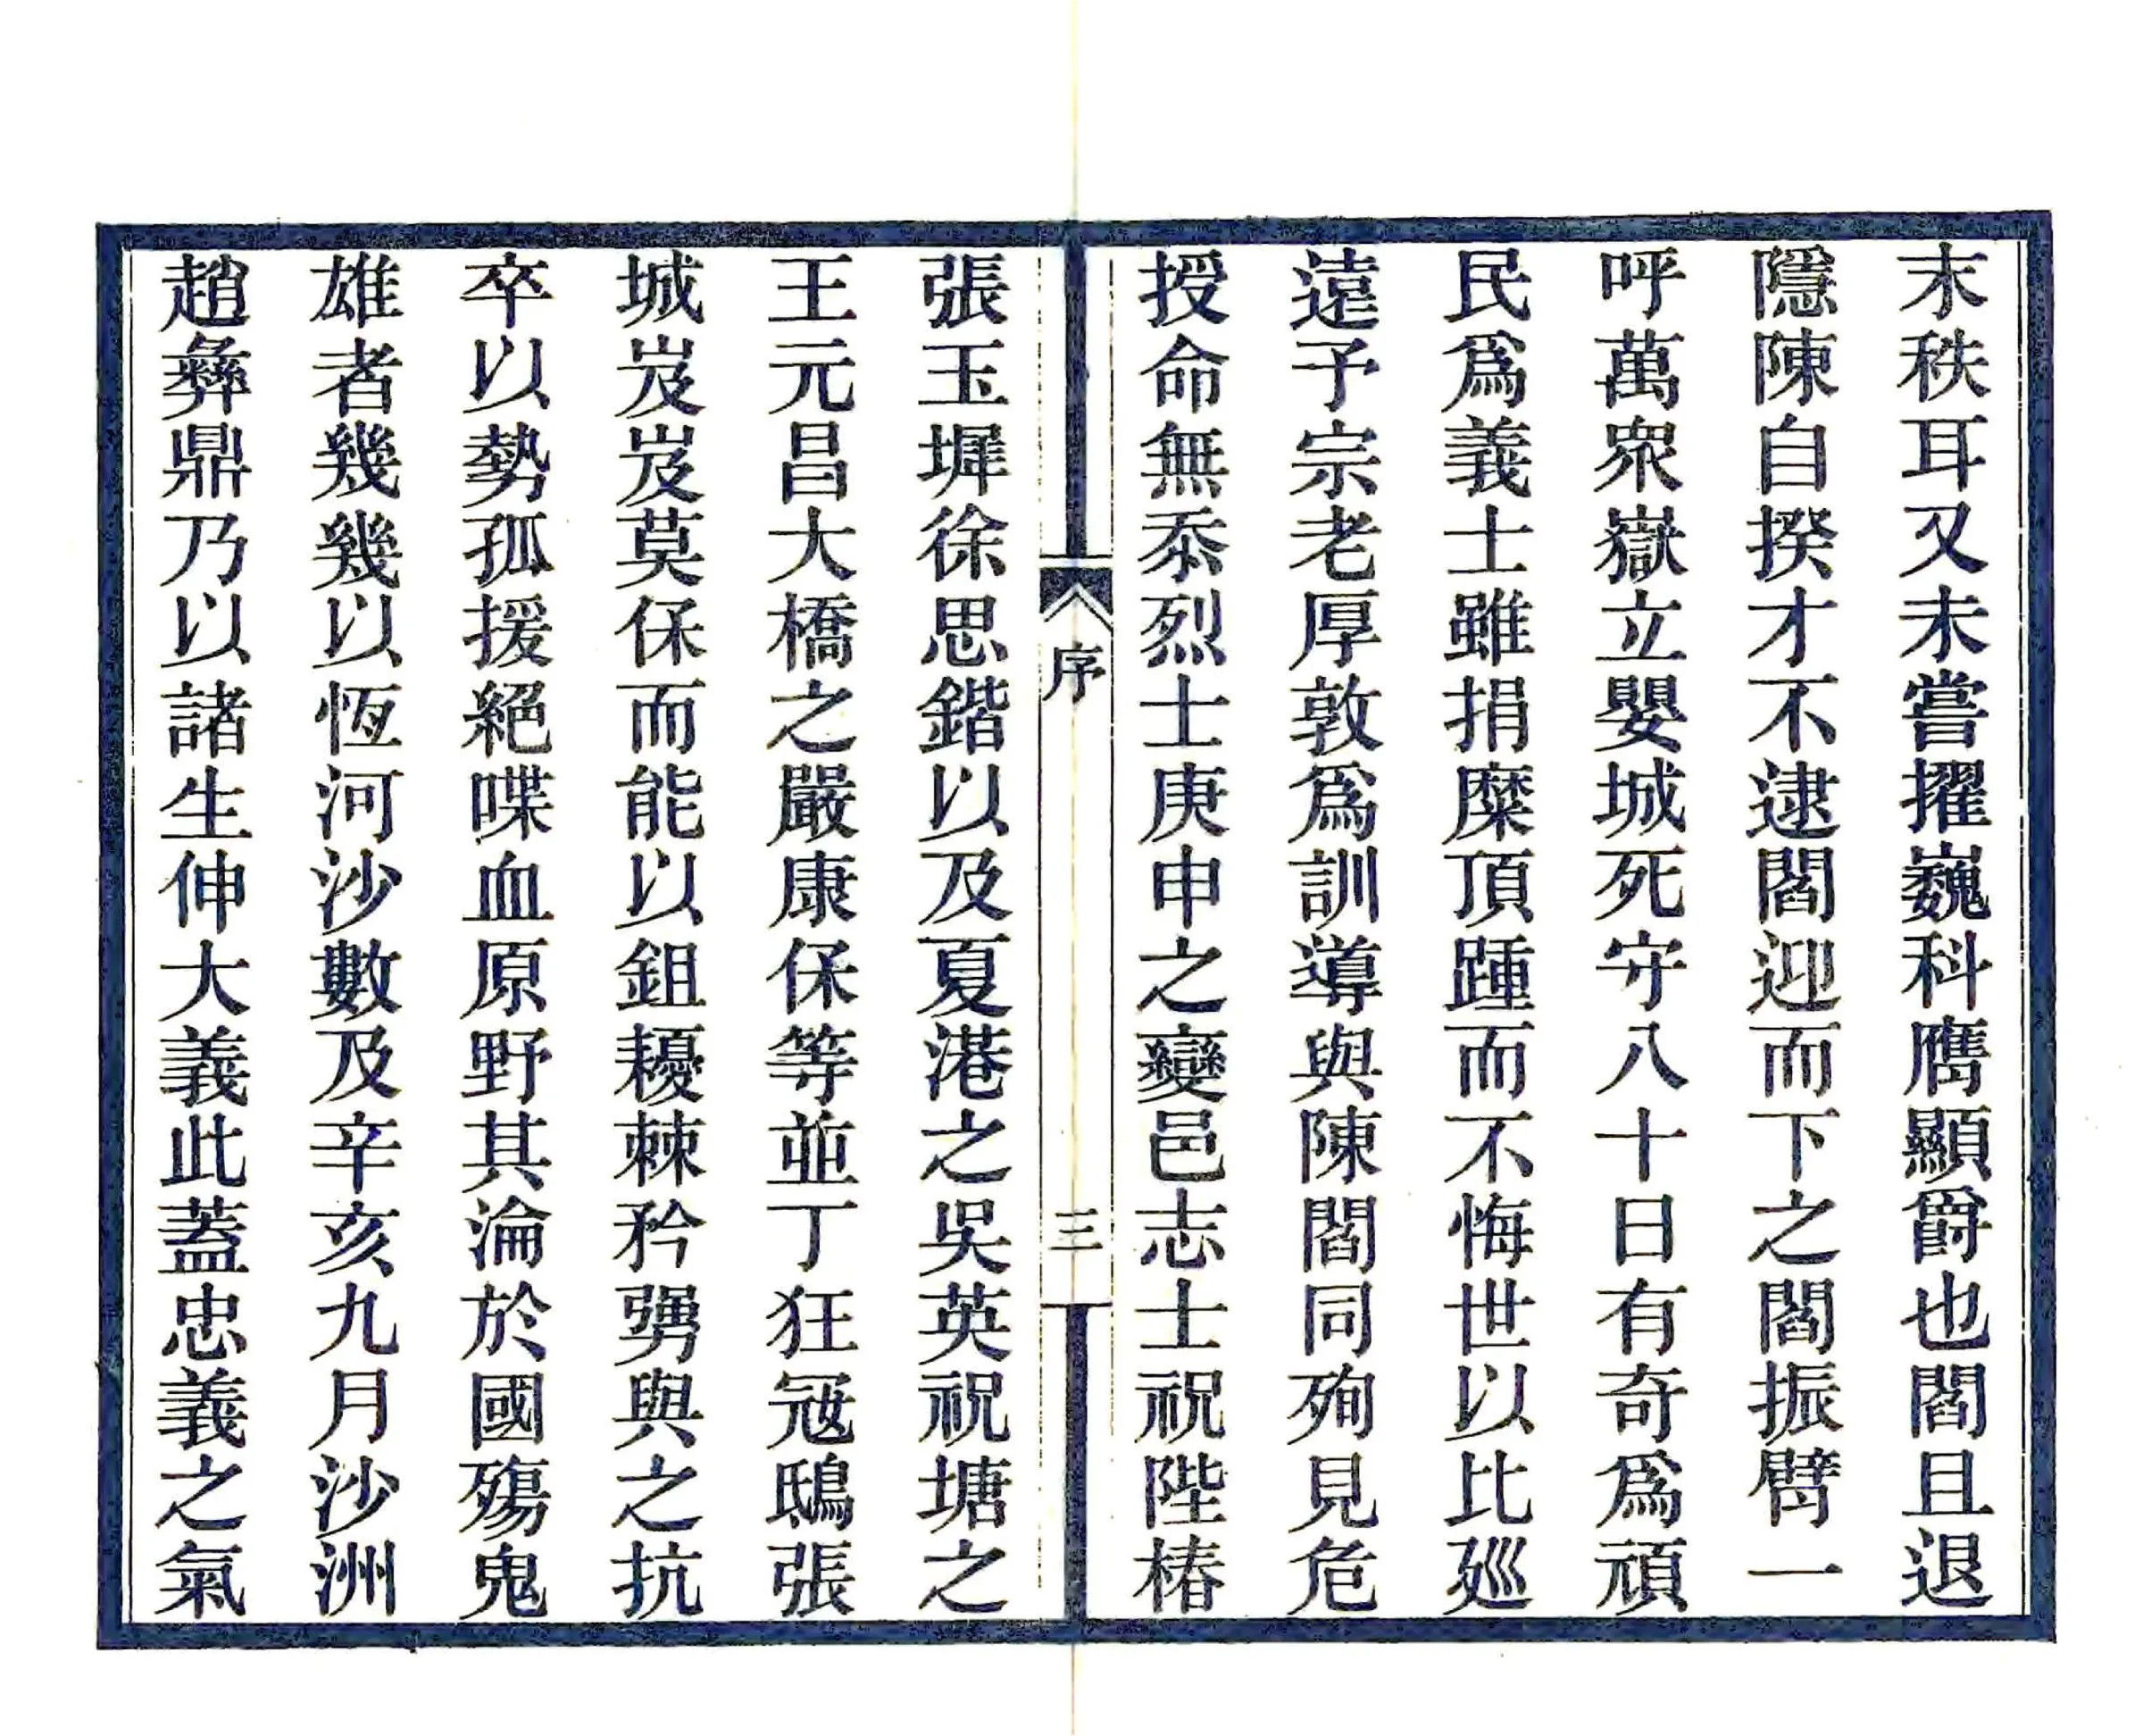 末秩耳又未嘗擢巍科膺顯爵也閻且退
隱陳自揆才不逮閻迎而下之閻振臂一
呼萬衆嶽立嬰城死守八十日有奇爲頑
民爲義士雖捐糜頂踵而不悔世以比廵
遠予宗老厚敦爲訓導與陳閻同殉見危
授命無忝烈士庚申之變邑志士祝陛椿
序
三
張玉墀徐思鍇以及夏港之吳英祝塘之
王元昌大橋之嚴康保等並丁狂寇鴟張
城岌岌莫保而能以鉏耰棘矜骋與之抗
卒以勢孤援絕喋血原野其淪於國殤鬼
雄者幾幾以恆河沙數及辛亥九月沙洲
趙彝鼎乃以諸生伸大義此蓋忠義之氣